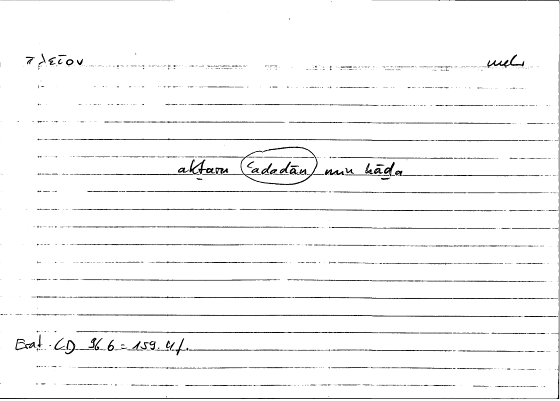 πλεῖον mehr
akṯaru ʿadadān min hāḏa
Erat. CD 96 6 = 159. 4f.